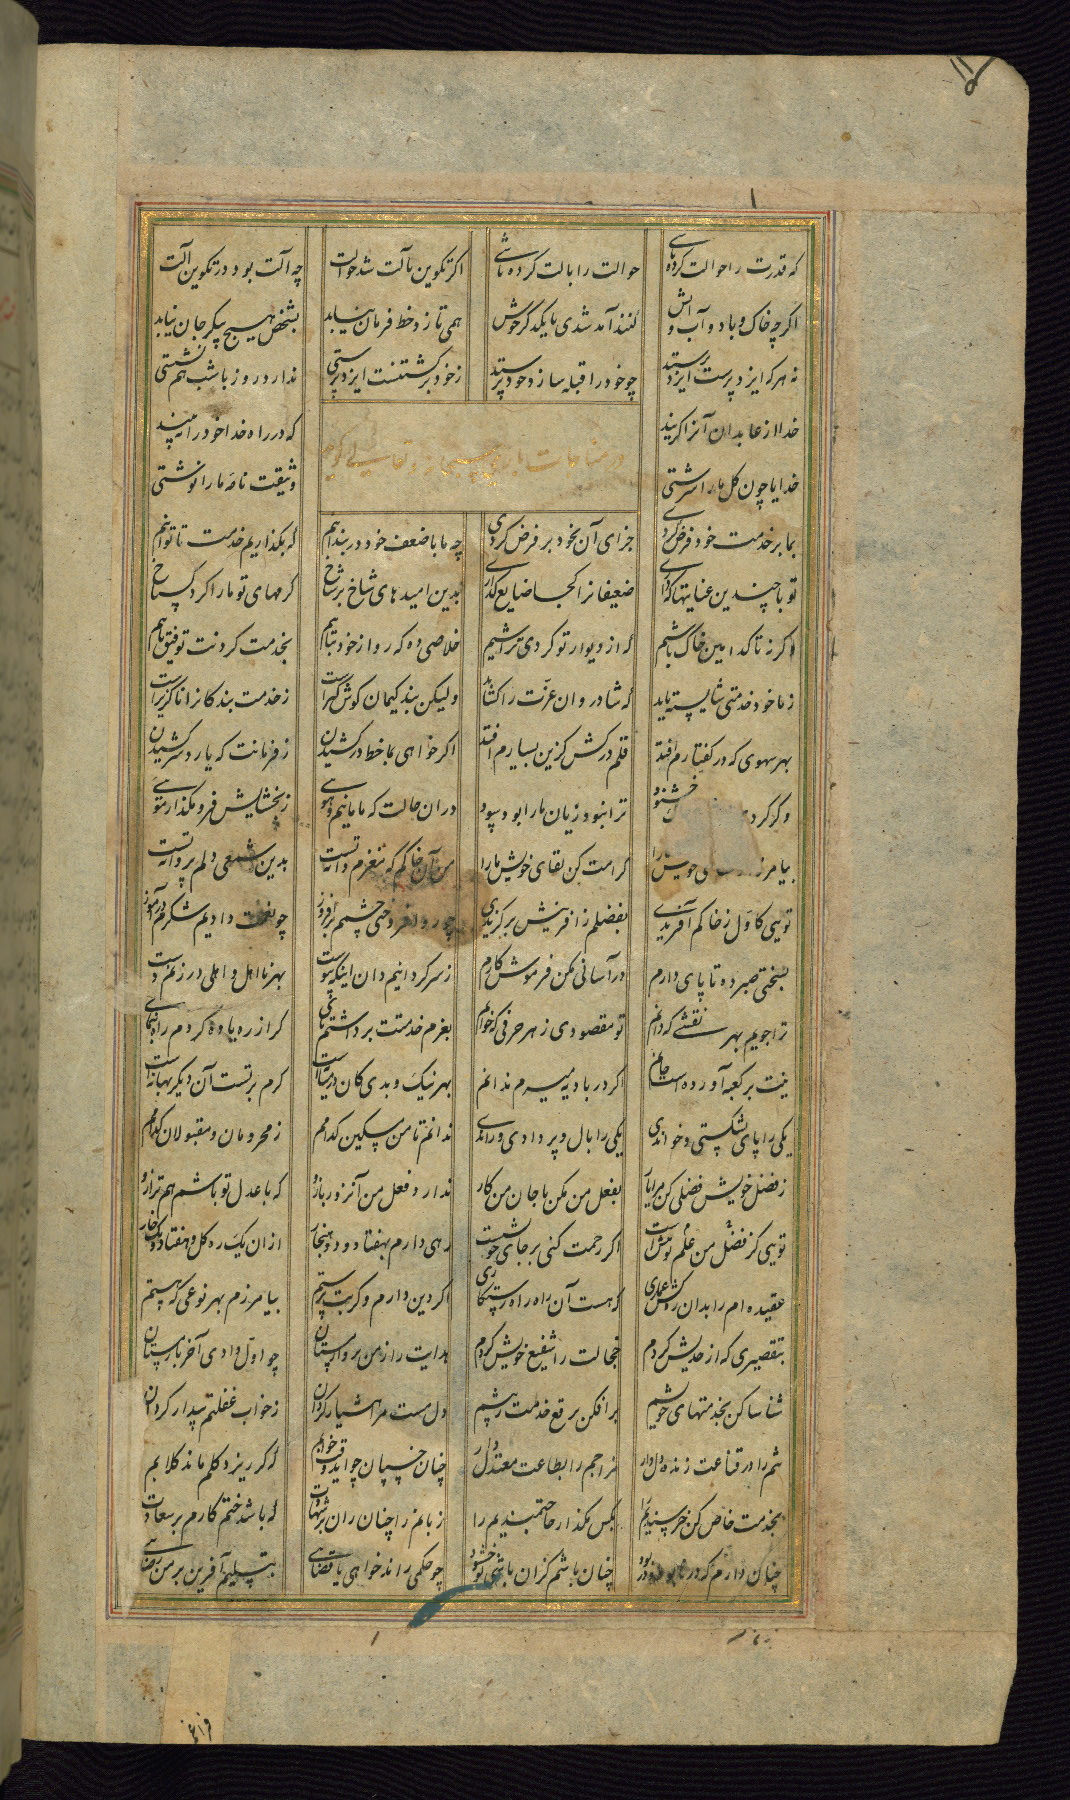 که قدرت را حوالت کرده باشی حوالت را بالت کرده باشی اکر تکوین بآلت شد حوالت چه آلت بود در تکوین آلت
اکر چه خاک و باد و آب و آتش کنند آمد شدی با یکدکر خوش همی تا زو خط فرمان نیابد بشخص هیچ پیکر جان نیابد
نه هر که ایزد پرست ایزد پرستد چو خود را قبله سازد خود پرستد ز خود برکشتنست ایزد پرستی ندارد روز با شب هم نشستی
خدا از عابدان آنرا کزیند که در راه خدا خود را نه بیند
در مناجات باری
خدایا چون کل ما را سرشتی وثیقت نامه ما را نوشتی
بما بر خدمت خود فرض کردی جزای آن بخود بر فرض کردی چه ما با ضعف خود در بند آنیم که بکذاریم خدمت تا توانیم
تو با چندین عنایتها که داری ضعیفانرا کجا ضایع کذاری بدین امیدهای شاخ بر شاخ کرمهای تو ما را کرد کستاخ
اکر نه تا کدامین خاک باشیم که از دیوار تو کردی تراشیم خلاصی ده که روا ز خود بتابیم بخدمت کردنت توفیق یابیم
ز ما خود خدمتی شایسته ناید که شادروان عزت را کشاید ولیکن بندکیمان کوش کیرست ز خدمت بندکانرا ناکزیرست
بهر سهوی که در کفتارم افتد قلم درکش کزین بسیارم افتد اکر خواهی بما خط درکشیدن ز فرمانت که یارد سر کشیدن
وکر کردی خشنود ترا نبود زیان ما را بود سود دران حالت که ما مانیم و هویی ز بخشایش فرو مکذار مویی
بیامرز ی خویش را کرامت کن لقای خویش ما را من آن خاکم که مغزم دانه تست بدین شمعی دلم پروانه تست
تویی کاول ز خاکم آفریدی بفضلم ز آفرینش برکزیدی چو روی افروختی چشمم برافروز چو نعمت دادیم شکرم درآموز
بسختی صبر ده تا پای دارم در آسانی مکن فرموش کارم ز سرکردانیم دان اینکه پیوست بهر نااهل و اهلی در زنم دست
ترا جویم بهر نقشی که دانم تو مقصودی ز هر حرفی که خوانم بعزم خدمتت برداشتم پای کر از ره یاوه کردم راه بنمای
نیت بر کعبه آورده است جانم اکر در بادیه میرم ندانم بهر نیک و بدی کان در میانست کرم بر تست آن دیکر بهانه‌ست
یکی را پای بشکستی و خواندی یکی را بال و پر دادی و راندی ندانم تا من مسکین کدامم ز محرومان و مقبولان کدامم
ز فضل خویش فضلی کن مرا یار بفعل من مکن با جان من کار ندارد فعل من آن زور بازو که با عدل تو باشم هم ترازو
تویی کز فضل من علم تو بیش است اکر رحمت کنی بر جای خویشست رهی دارم بهفتاد و دو هنجار ازان یک ره کل و هفتاد و یک خار
عقیده‌ام را بدان ره کش عماری که هست آن راه راه رستکاری اکر دین دارم و کر بت پرستم بیامرزم بهر نوعی که هستم
بتقصیری که از حد بیش کردم خجالت را شفیع خویش کردم هدایت را ز من پروا مستان چو اول دادی آخر باز مستان
شناسا کن بخدمتهای خویشم برافکن برقع خدمت ز پیشم دل مست مرا هشیار کردان ز خواب غفلتم بیدار کردان
تنم را در قناعت زنده دل دار مزاجم را بطاعت معتدل دار چنان خسپان چو آید وقت خوابم که کر ریزد کلم ماند کلابم
بخدمت خاص کن خرسندیم را بکس مکذار حاجتمندیم را زبانم را چنان ران بر شهادت که باشد ختم کارم بر سعادت
چنان دارم که در نابود و در بود چنان باشم کزان باشی تو خشنود چو حکمی راند خواهی یا قضایی بتسلیم آفرین بر من رضایی